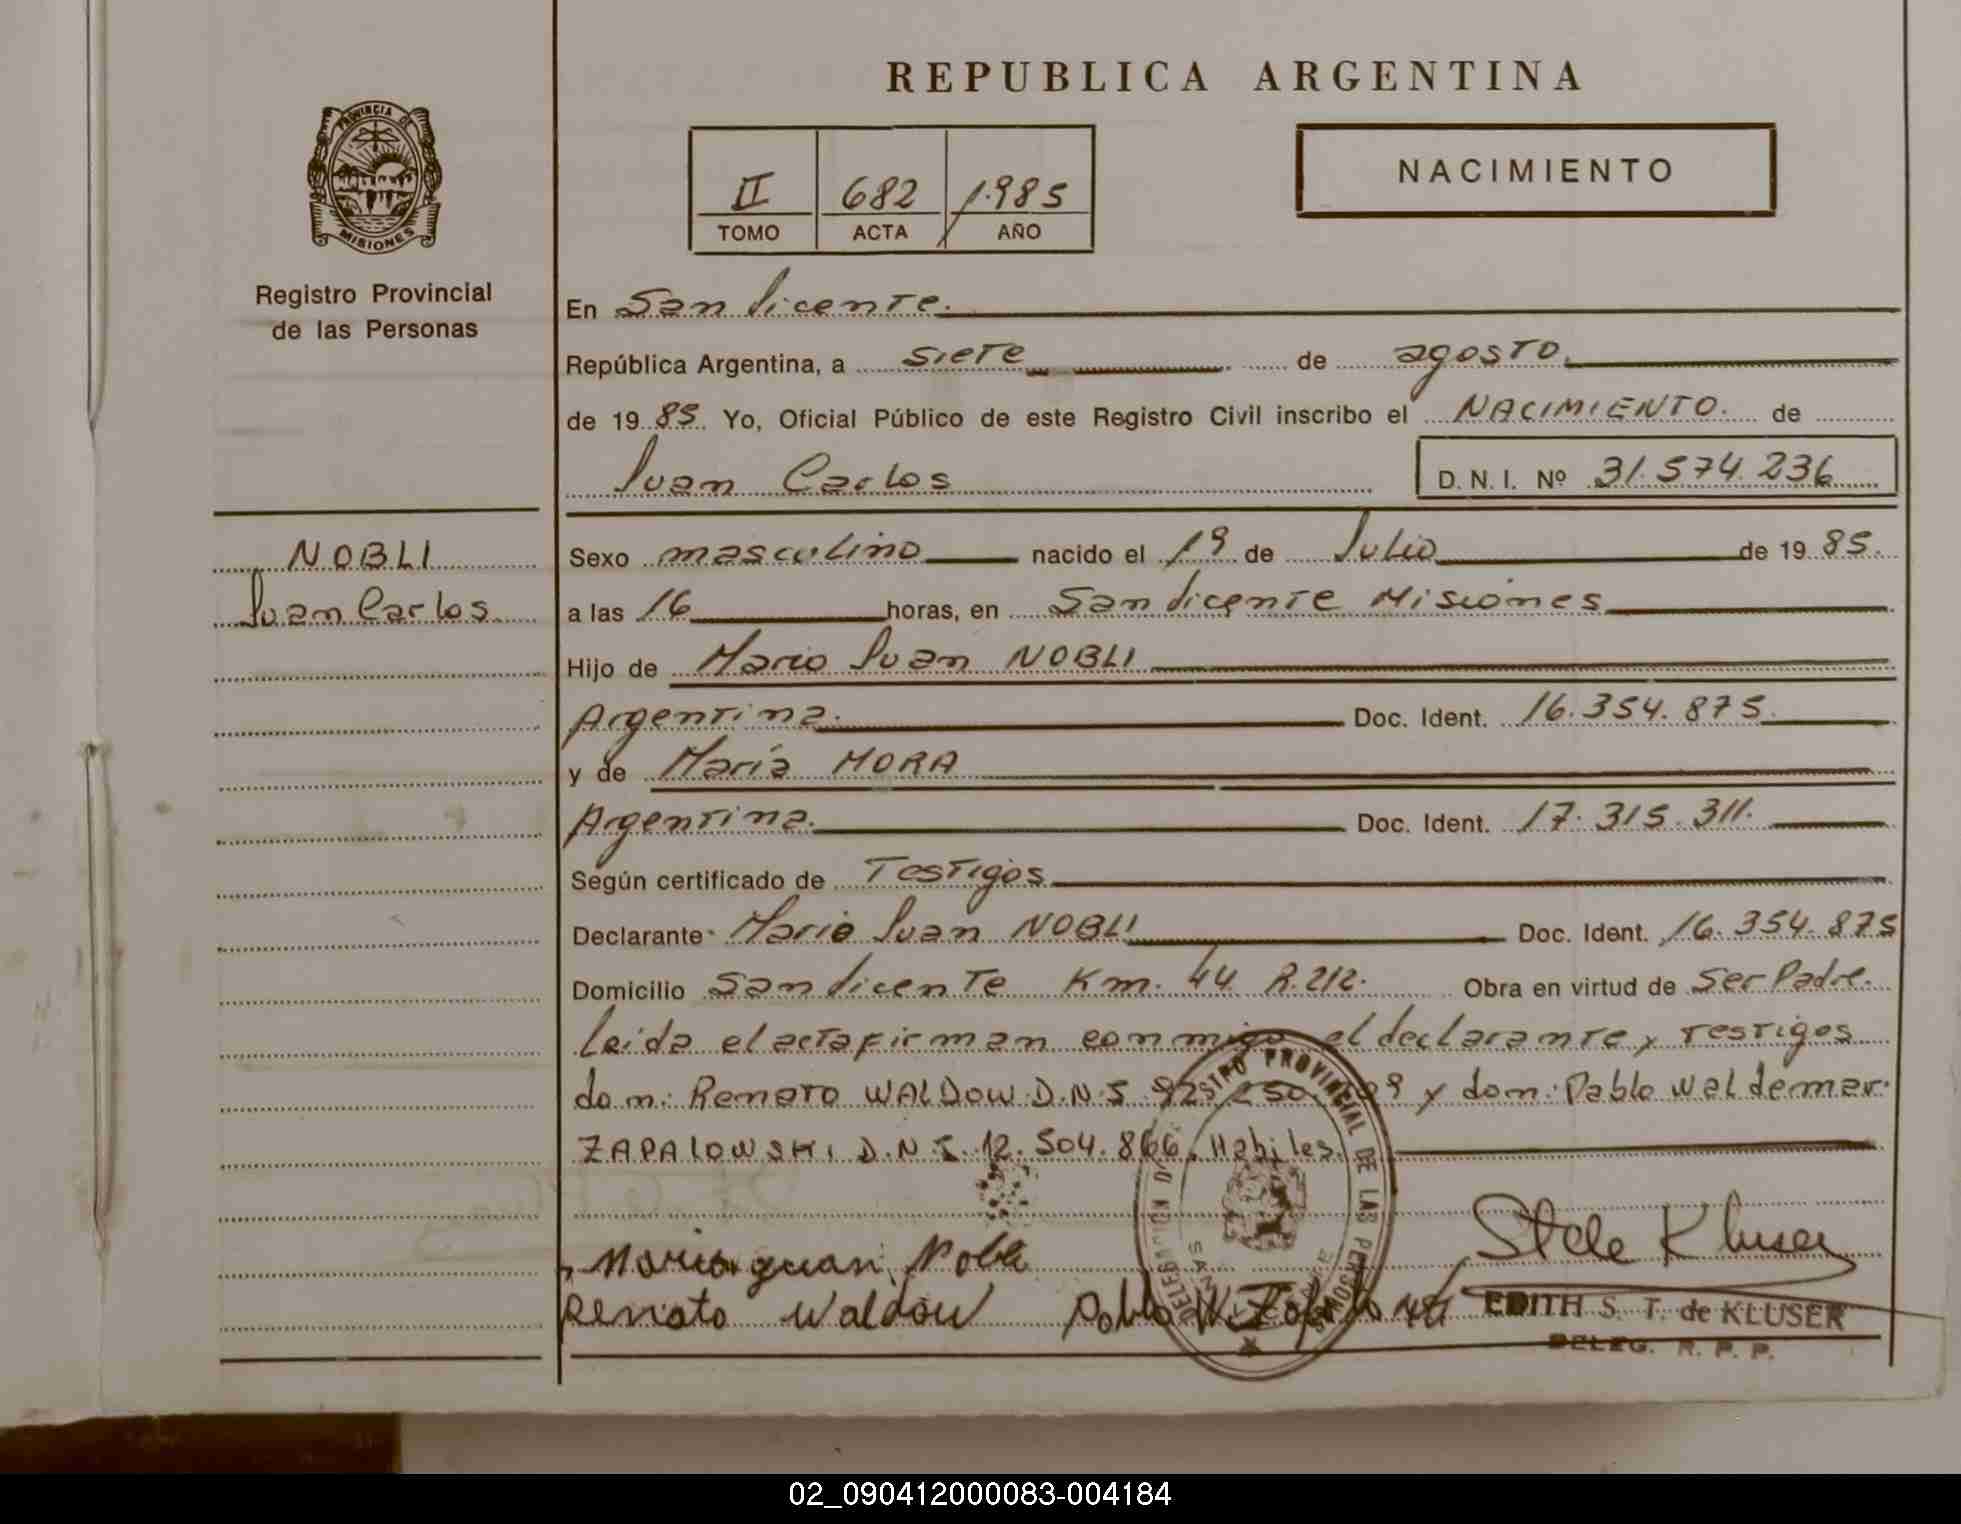 REPUBLICA ARGENTINA
PROVINCIA D
MISIONES
Registro Provincial
de las Personas
II 682 1985
TOMO ACTA AÑO
NACIMIENTO
En San Vicente.
República Argentina, a siete de agosto.
de 1985. Yo, Oficial Público de este Registro Civil inscribo el NACIMIENTO. de
Juan Carlos D. N. I. Nº 31.574.236
NOBLI
Juan Carlos
Sexo masculino nacido el 19 de Julio de 1985.
a las 16 horas, en San Vicente Misiones
Hijo de Mario Juan NOBLI
Argentina. Doc. Ident. 16.354.875.
y de María MORA
Argentina. Doc. Ident. 17.315.311.
Según certificado de Testigos
Declarante Mario Juan NOBLI Doc. Ident. 16.354.875
Domicilio San Vicente Km. 44 R.212. Obra en virtud de Ser Padre.
Leida el acta firman conmigo el declarante y testigos
don: Renato WALDOW D.N.I. y don: Pablo Waldemar
ZAPALOWSKI D.N.I. 12.504.866. Habiles.
Mario Juan Nobli
Renato Waldow Pablo W.
Stela Kluser
EDITH S. T. de KLUSER
DELEG. R. P. P.
REGISTRO PROVINCIAL DE LAS PERSONAS
02_090412000083-004184